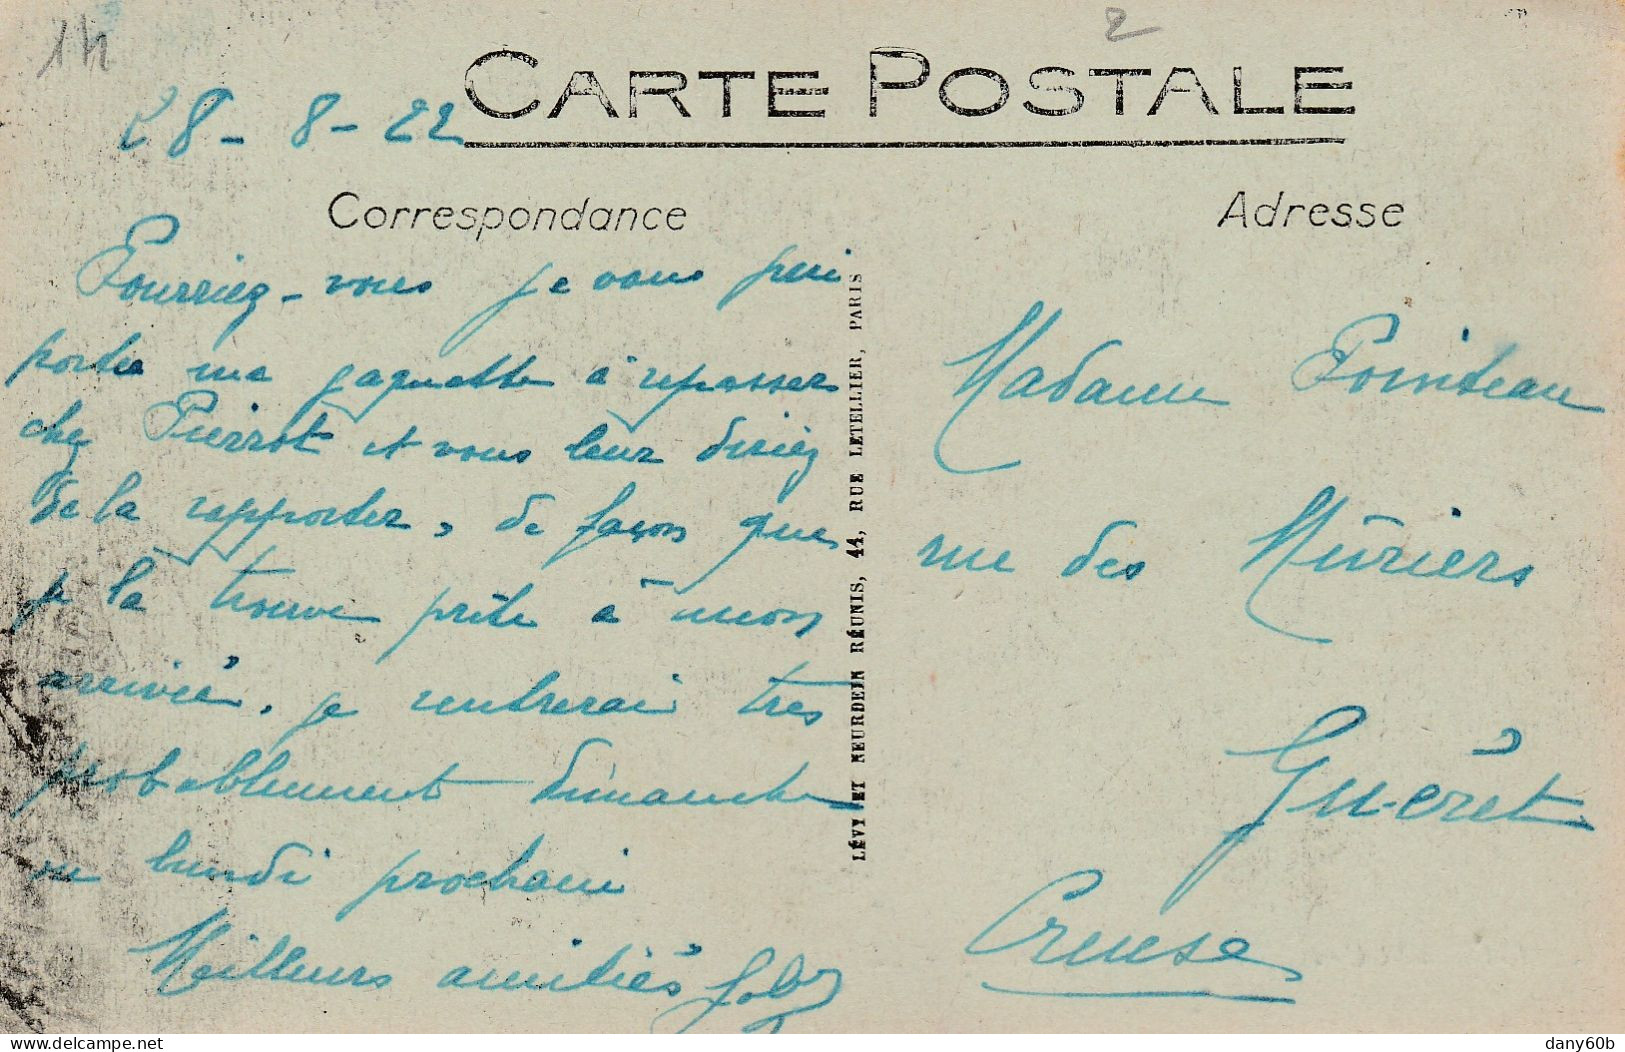 14
2
CARTE POSTALE
28-8-22
Correspondance
Adresse
Pourriez-vous je vous prie
porter ma jaquette à repasser
chez Pierrot et vous leur diriez
de la rapporter, de façon que
je la trouve prête à mon
arrivée. je rentrerai très
probablement dimanche
ou lundi prochain
Meilleurs amitiés
LÉVY ET NEURDEIN RÉUNIS, 44, RUE LETELLIER, PARIS
Madame Pointeau
rue des Mûriers
Guéret
Creuse
delcampe.net
dany60b